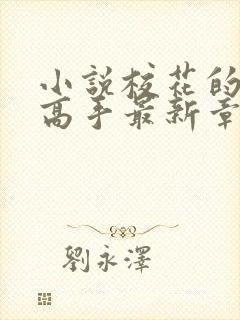 小說校花的
高手最新章
劉永澤